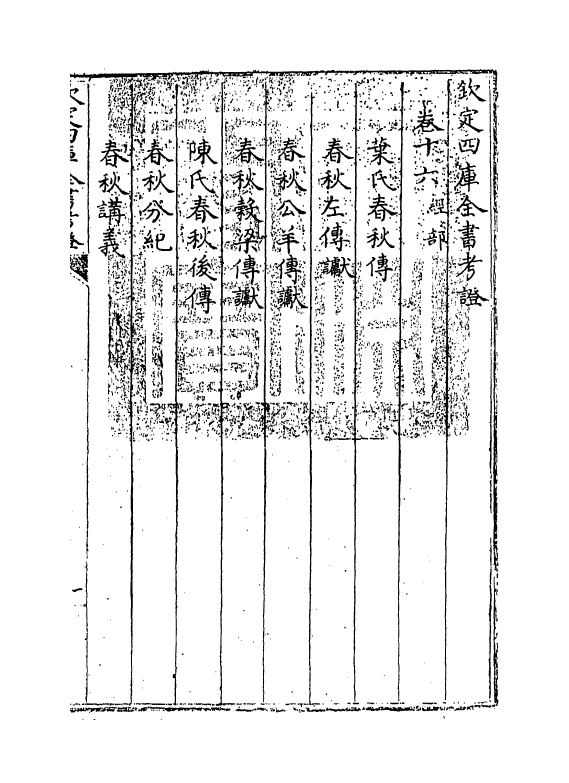 欽定四庫全書考證
卷十六 經部
葉氏春秋傳
春秋左傳讞
春秋公羊傳讞
春秋穀梁傳讞
陳氏春秋後傳
春秋分紀
春秋講義
一